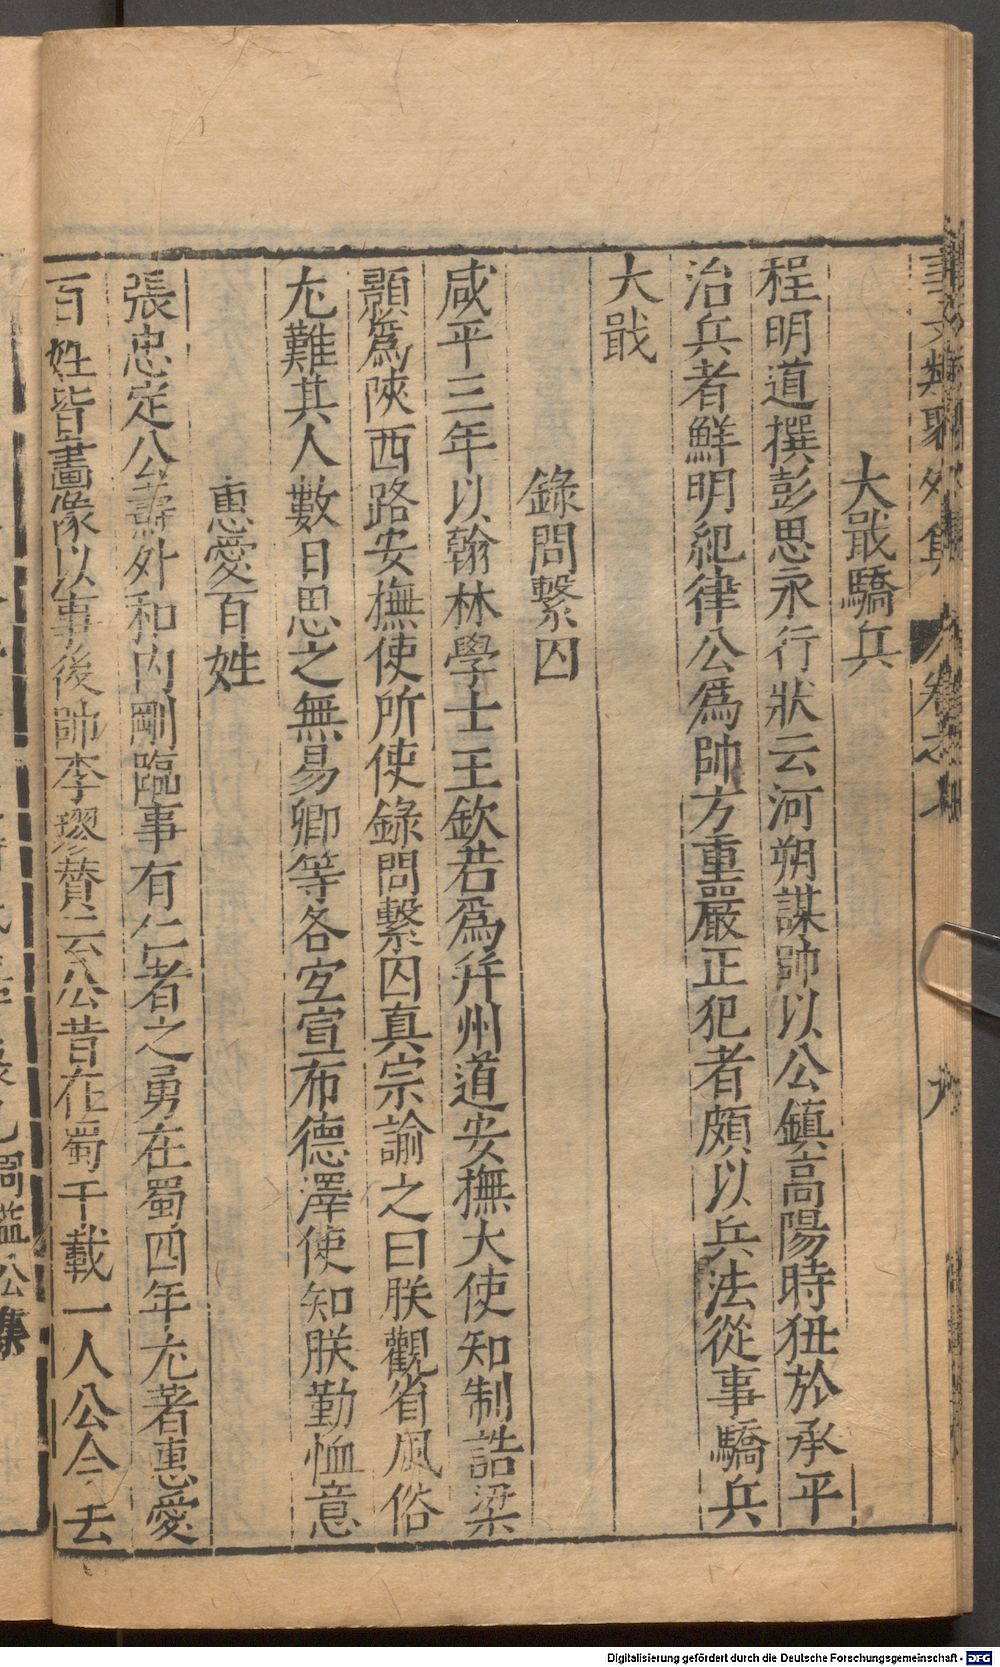 事文類聚外集 卷之 九
大戢驕兵
程明道撰彭思永行狀云河朔謀帥以公鎮高陽時狃於承平
治兵者鮮明紀律公爲帥方重嚴正犯者頗以兵法從事驕兵
大戢
錄問繫囚
咸平三年以翰林學士王欽若爲并州道安撫大使知制誥梁
顥爲陝西路安撫使所使錄問繫囚真宗諭之曰朕觀省風俗
尢難其人數日思之無易卿等各宜宣布德澤使知朕勤恤意
惠愛百姓
張忠定公壽外和內剛臨事有仁者之勇在蜀四年尢著惠愛
百姓皆畫像以事後帥李璆贊云公昔在蜀千載一人公今去
周益公集
Digitalisierung gefördert durch die Deutsche Forschungsgemeinschaft - DFG